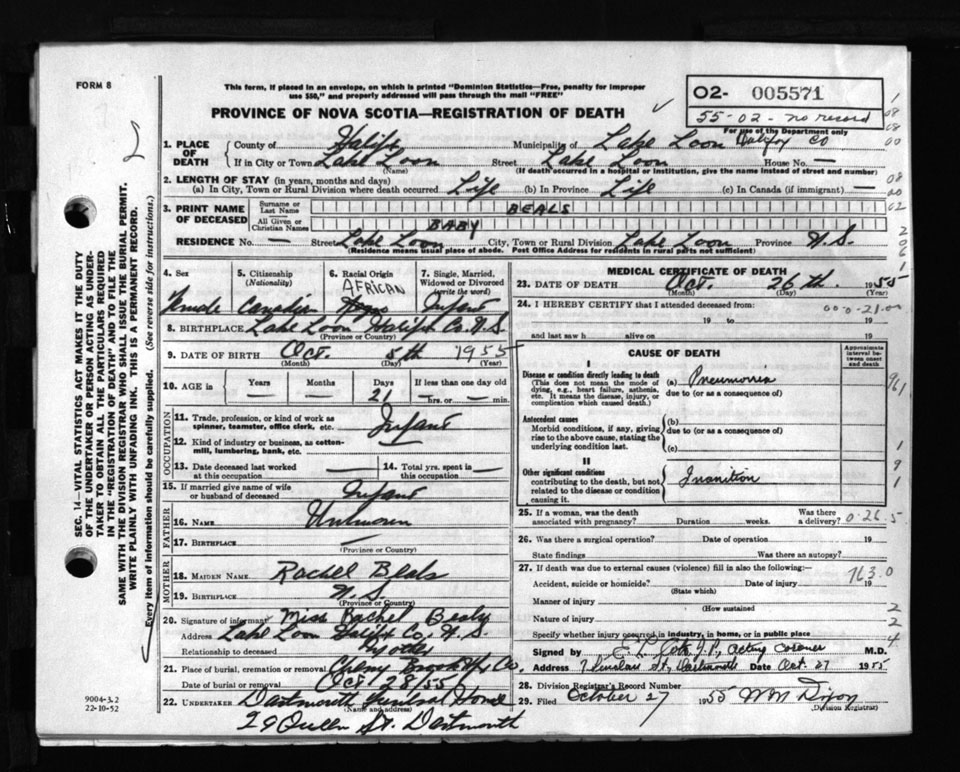 FORM 8
This form, if placed in an envelope, on which is printed "Dominion Statistics—Free, penalty for improper
use $50," and properly addressed will pass through the mail "FREE"
PROVINCE OF NOVA SCOTIA—REGISTRATION OF DEATH
O2- 005571
55-02- no record
For use of the Department only
1. PLACE OF DEATH
County of Halifx Municipality of Lake Loon Halifax Co
If in City or Town Lake Loon Street Lake Loon House No. —
(Name) (If death occurred in a hospital or institution, give the name instead of street and number)
2. LENGTH OF STAY (in years, months and days)
(a) In City, Town or Rural Division where death occurred Life (b) In Province Life (c) In Canada (if immigrant) —
3. PRINT NAME OF DECEASED
Surname or Last Name BEALS
All Given or Christian Names BABY
RESIDENCE No. — Street Lake Loon City, Town or Rural Division Lake Loon Province N.S.
(Residence means usual place of abode. Post Office Address for residents in rural parts not sufficient)
4. Sex 5. Citizenship (Nationality) 6. Racial Origin 7. Single, Married, Widowed or Divorced (write the word)
Female Canadian AFRICAN Infant
8. BIRTHPLACE Lake Loon Halifx Co. N.S.
(Province or Country)
9. DATE OF BIRTH Oct. 5th 1955
(Month) (Day) (Year)
10. AGE in Years — Months — Days 21 If less than one day old — hrs. or — min.
OCCUPATION
11. Trade, profession, or kind of work as spinner, teamster, office clerk, etc. Infant
12. Kind of industry or business, as cotton-mill, lumbering, bank, etc. —
13. Date deceased last worked at this occupation — 14. Total yrs. spent in this occupation —
15. If married give name of wife or husband of deceased Infant
FATHER
16. NAME Unknown
17. BIRTHPLACE —
(Province or Country)
MOTHER
18. MAIDEN NAME Rachel Beals
19. BIRTHPLACE N.S.
(Province or Country)
20. Signature of informant Miss Rachel Beals
Address Lake Loon Halifx Co, N.S.
Relationship to deceased Mother
21. Place of burial, cremation or removal Cherry Brook Hfx Co.
Date of burial or removal Oct 28/55
22. UNDERTAKER Dartmouth Funeral Home
(Name and address)
29 Queen St. Dartmouth
MEDICAL CERTIFICATE OF DEATH
23. DATE OF DEATH Oct. 26th 1955
(Month) (Day) (Year)
24. I HEREBY CERTIFY that I attended deceased from:
000-21-00
19 to 19
and last saw h alive on 19
CAUSE OF DEATH
Approximate interval between onset and death
I
Disease or condition directly leading to death
(This does not mean the mode of dying, e.g., heart failure, asthenia, etc. It means the disease, injury, or complication which caused death.)
(a) Pneumonia
due to (or as a consequence of)
Antecedent causes
Morbid conditions, if any, giving rise to the above cause, stating the underlying condition last.
(b)
due to (or as a consequence of)
(c)
II
Other significant conditions
contributing to the death, but not related to the disease or condition causing it.
Inanition
25. If a woman, was the death associated with pregnancy? Duration weeks. Was there a delivery? 0-26.5
26. Was there a surgical operation? Date of operation 19
State findings Was there an autopsy?
27. If death was due to external causes (violence) fill in also the following:— 763.0
Accident, suicide or homicide? Date of injury 19
(State which)
Manner of injury
(How sustained)
Nature of injury
Specify whether injury occurred in industry, in home, or in public place
Signed by J.P., acting coroner M.D.
Address St, Dartmouth Date Oct. 27 1955
28. Division Registrar's Record Number
29. Filed October 27 1955 WM Dixon
(Division Registrar)
SEC. 14—VITAL STATISTICS ACT MAKES IT THE DUTY
OF THE UNDERTAKER OR PERSON ACTING AS UNDER-
TAKER TO OBTAIN ALL THE PARTICULARS REQUIRED
IN THE "REGISTRATION OF DEATH" AND TO FILE THE
SAME WITH THE DIVISION REGISTRAR WHO SHALL ISSUE THE BURIAL PERMIT.
WRITE PLAINLY WITH UNFADING INK. THIS IS A PERMANENT RECORD.
Every item of information should be carefully supplied. (See reverse side for instructions.)
9004-3.2
22-10-52